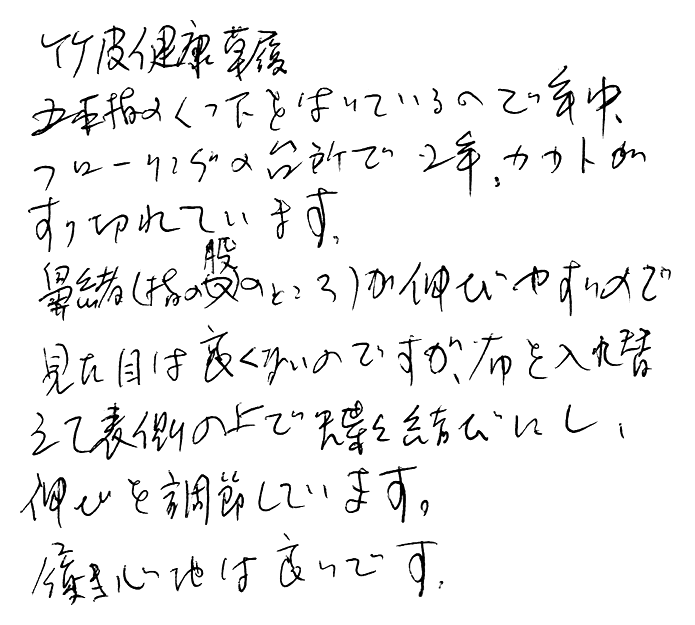 竹皮健康草履
五本指のくつ下をはいているので年中、
フローリングの台所で2年、カカトが
すり切れています。
鼻緒(指の股のところ)が伸びやすいので
見た目は良くないのですが、布を入れ替
えて表側の上で蝶々結びにし、
伸びを調節しています。
履き心地は良いです。